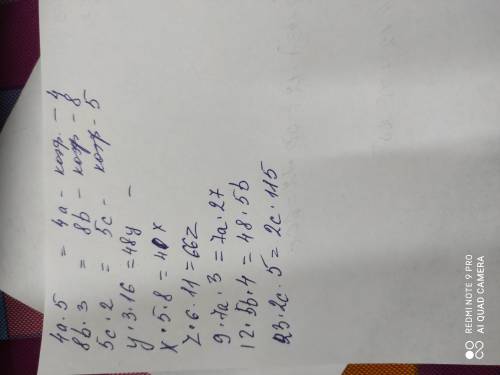 4a·5 = 4a - коэф. - 4
8b·3 = 8b - коэф - 8
5c·2 = 5c - коэф - 5
y·3·16 = 48y -
x·5·8 = 40x
z·6·11 = 66z
9·7a·3 = 7a·27
12·5b·4 = 48·5b
23·2c·5 = 2c·115
REDMI NOTE 9 PRO
AI QUAD CAMERA